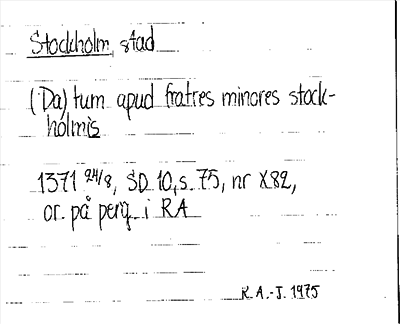 Stockholm, stad
(Da)tum apud fratres minores stock-
holmis
1371 24/8, SD 10, s. 75, nr X82,
or. på perg. i RA
K.A.-J. 1975